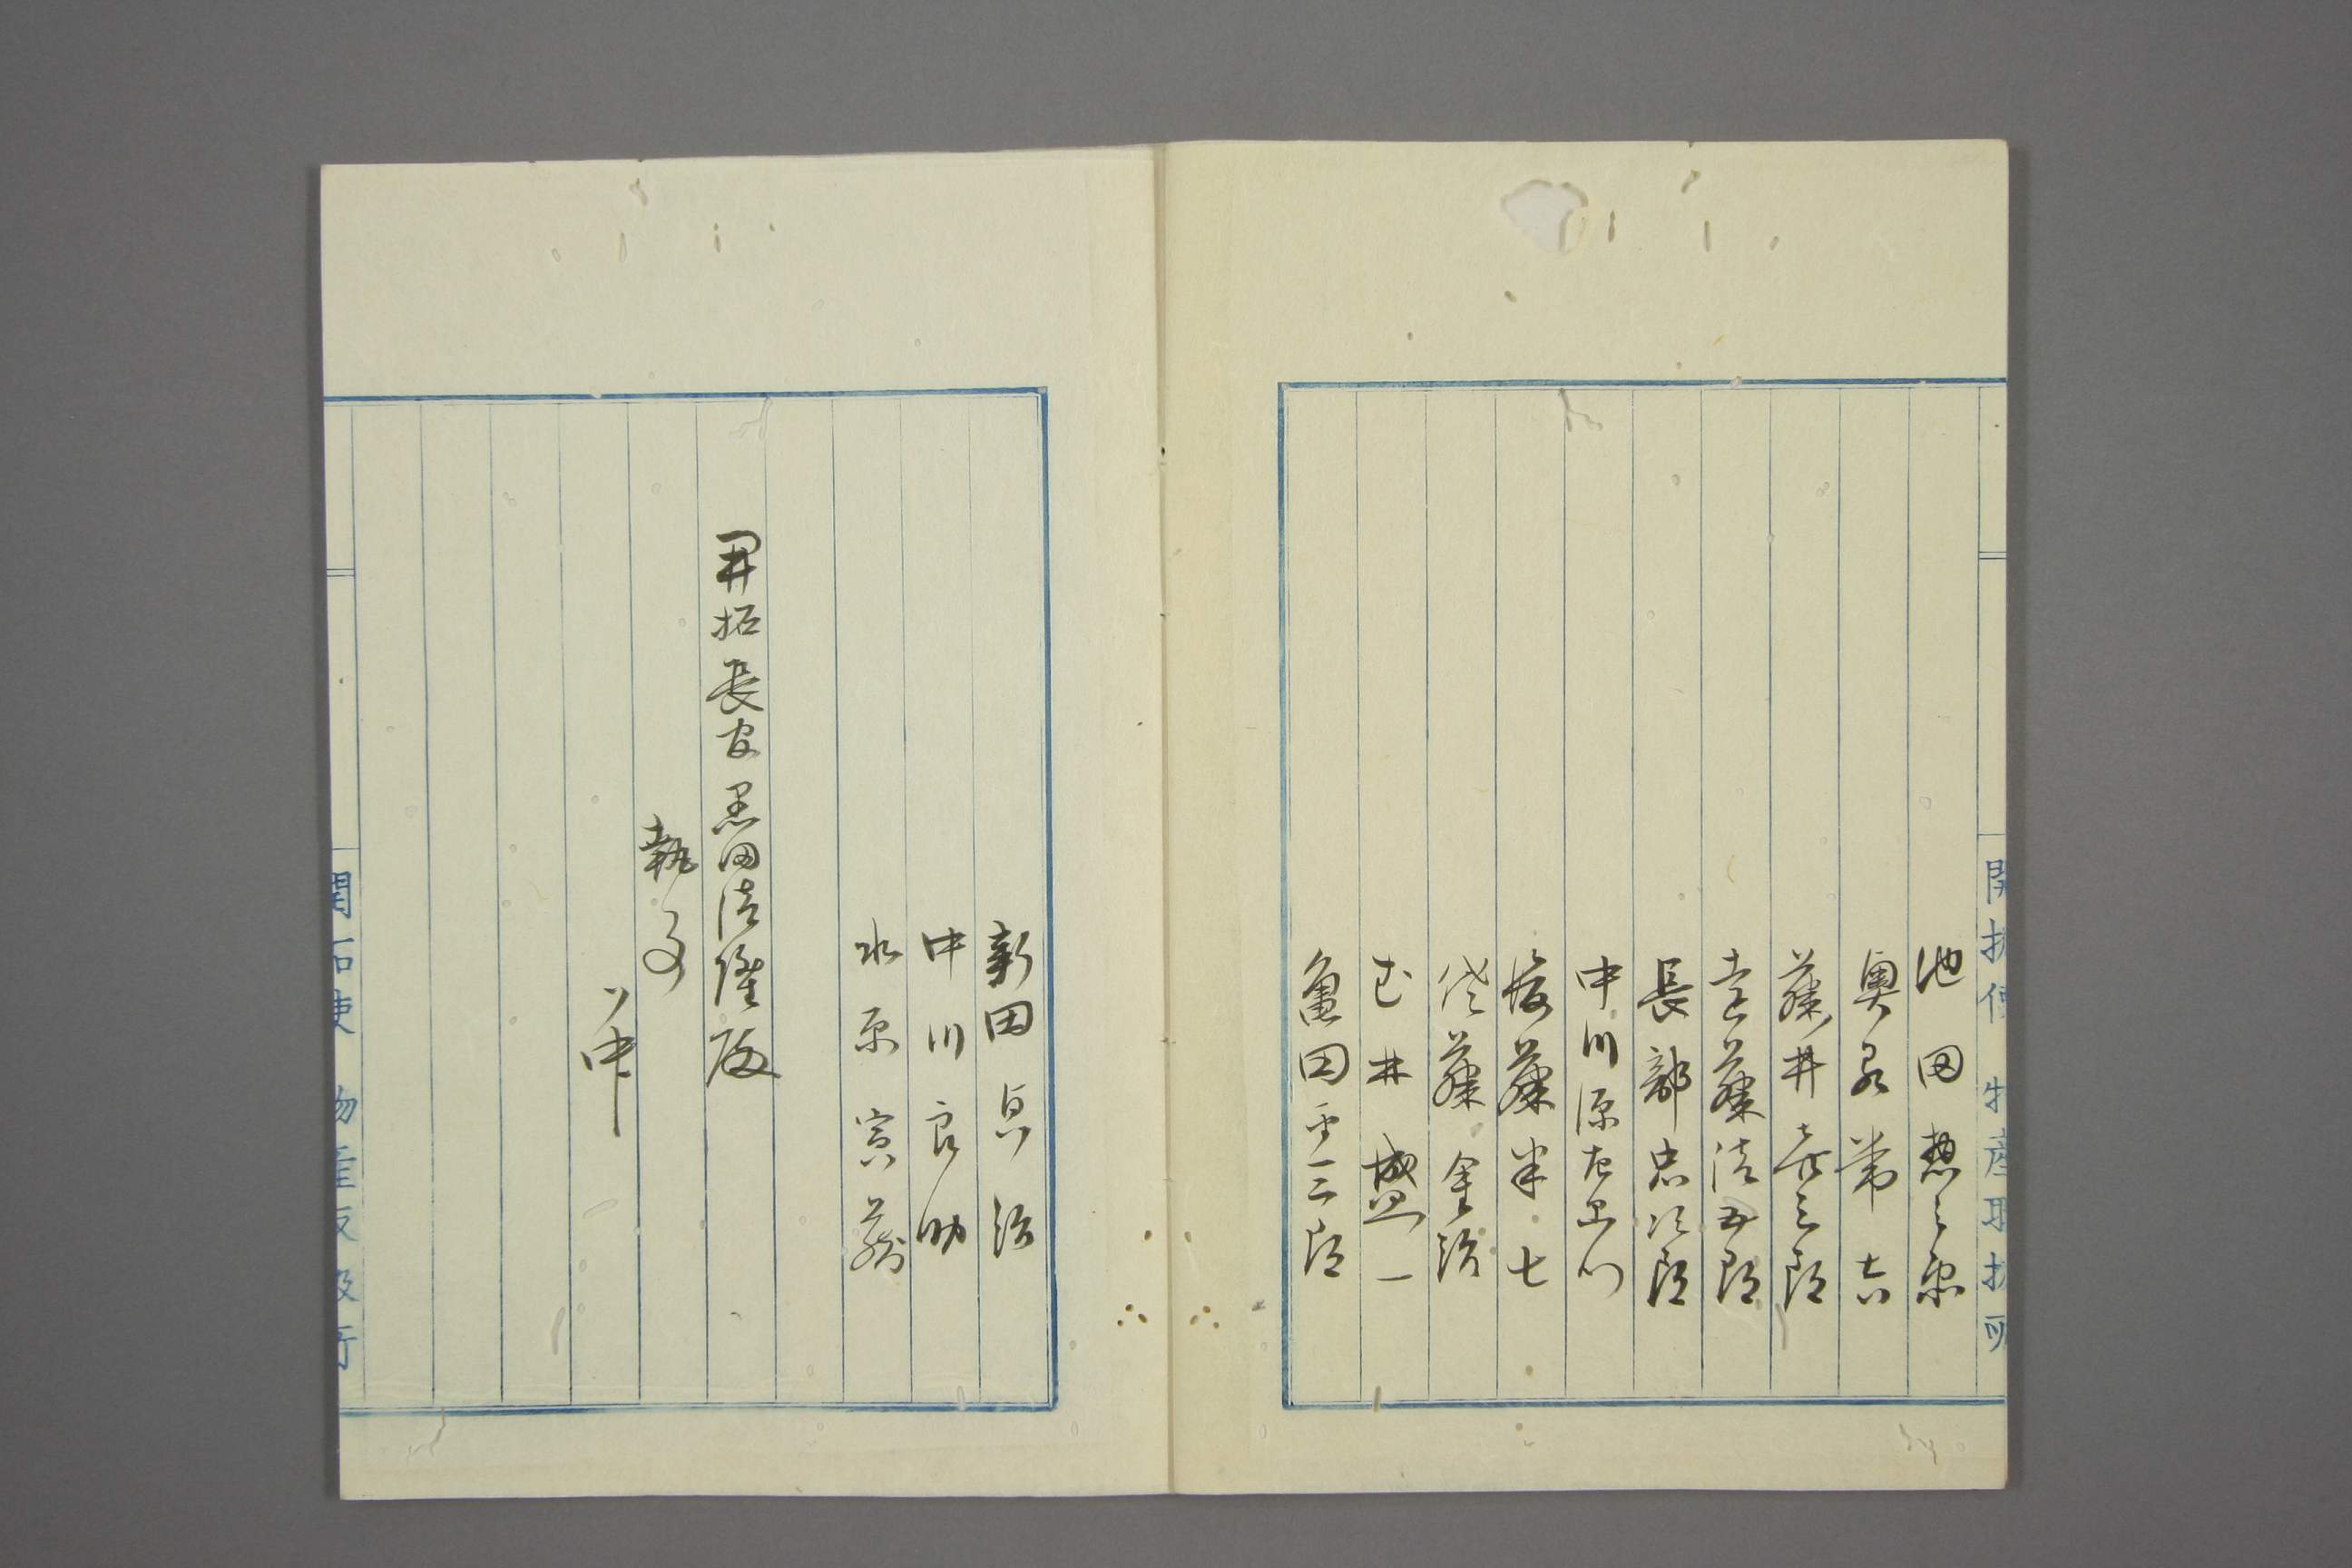 開拓使 物産取扱所
池田惣之丞
奥泉常吉
藤井喜三郎
遠藤清五郎
長部忠次郎
中川源左衛門
後藤半七
佐藤金治
武井盛一
亀田平三郎
新田貞治
中川良助
水原寅蔵
開拓長官黒田清隆殿
執事
御中
開拓使 物産取扱所